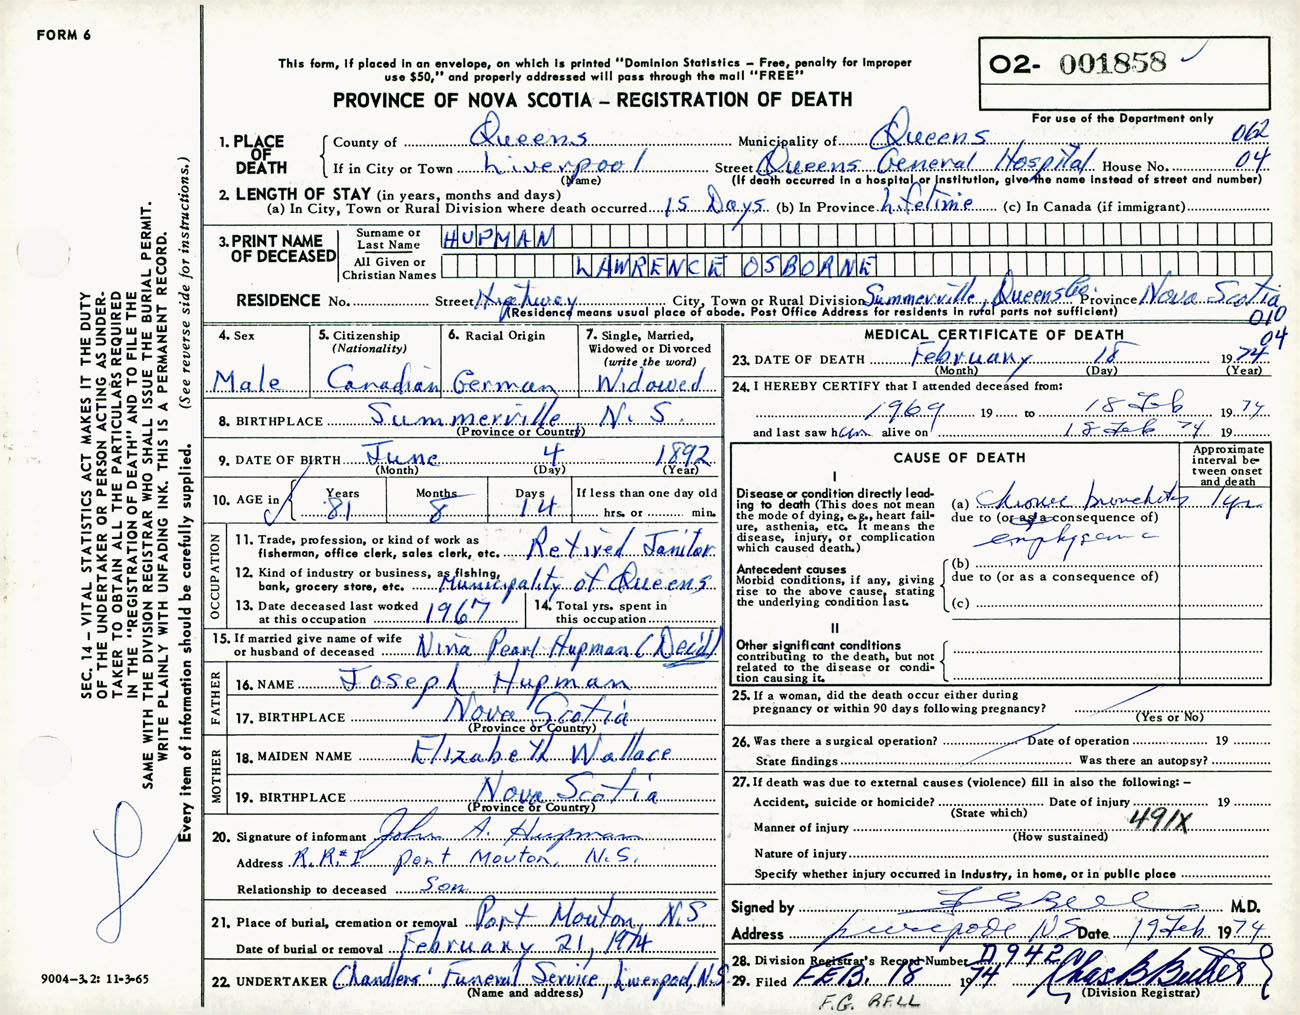 FORM 6
This form, if placed in an envelope, on which is printed "Dominion Statistics – Free, penalty for improper
use $50," and properly addressed will pass through the mail "FREE"
PROVINCE OF NOVA SCOTIA – REGISTRATION OF DEATH
O2- 001858
For use of the Department only
062
1. PLACE OF DEATH County of Queens Municipality of Queens
If in City or Town Liverpool Street Queens General Hospital House No. 04
(Name) (If death occurred in a hospital or institution, give the name instead of street and number)
2. LENGTH OF STAY (in years, months and days)
(a) In City, Town or Rural Division where death occurred 15 Days (b) In Province Lifetime (c) In Canada (if immigrant)
3. PRINT NAME OF DECEASED Surname or Last Name HUPMAN
All Given or Christian Names LAWRENCE OSBORNE
RESIDENCE No. Street Highway City, Town or Rural Division Summerville, Queens Co. Province Nova Scotia
(Residence means usual place of abode. Post Office Address for residents in rural parts not sufficient)
010
04
4. Sex Male
5. Citizenship (Nationality) Canadian
6. Racial Origin German
7. Single, Married, Widowed or Divorced (write the word) Widowed
8. BIRTHPLACE Summerville N.S.
(Province or Country)
9. DATE OF BIRTH June 4 1892
(Month) (Day) (Year)
10. AGE in Years 81 Months 8 Days 14 If less than one day old hrs. or min.
OCCUPATION
11. Trade, profession, or kind of work as
fisherman, office clerk, sales clerk, etc. Retired Janitor
12. Kind of industry or business, as fishing,
bank, grocery store, etc. Municipality of Queens
13. Date deceased last worked
at this occupation 1967
14. Total yrs. spent in
this occupation
15. If married give name of wife
or husband of deceased Nina Pearl Hupman (Dec'd)
FATHER
16. NAME Joseph Hupman
17. BIRTHPLACE Nova Scotia
(Province or Country)
MOTHER
18. MAIDEN NAME Elizabeth Wallace
19. BIRTHPLACE Nova Scotia
(Province or Country)
20. Signature of informant John A. Hupman
Address R.R.#1 Port Mouton, N.S.
Relationship to deceased Son
21. Place of burial, cremation or removal Port Mouton, N.S.
Date of burial or removal February 21, 1974
22. UNDERTAKER Chandlers' Funeral Service, Liverpool, N.S.
(Name and address)
MEDICAL CERTIFICATE OF DEATH
23. DATE OF DEATH February 18 1974
(Month) (Day) (Year)
24. I HEREBY CERTIFY that I attended deceased from:
1969 19 to 18 Feb 1974
and last saw him alive on 18 Feb 74 19
CAUSE OF DEATH
Approximate
interval be-
tween onset
and death
I
Disease or condition directly lead-
ing to death (This does not
mean the mode of dying, e.g., heart fail-
ure, asthenia, etc. It means the
disease, injury, or complication
which caused death.)
(a) chronic bronchitis 1 yr
due to (or as a consequence of)
emphysema
Antecedent causes
Morbid conditions, if any, giving
rise to the above cause, stating
the underlying condition last.
(b)
due to (or as a consequence of)
(c)
II
Other significant conditions
contributing to the death, but not
related to the disease or condi-
tion causing it.
25. If a woman, did the death occur either during
pregnancy or within 90 days following pregnancy?
(Yes or No)
26. Was there a surgical operation? Date of operation 19
State findings Was there an autopsy?
27. If death was due to external causes (violence) fill in also the following: –
Accident, suicide or homicide? Date of injury 19
(State which)
491X
Manner of injury
(How sustained)
Nature of injury
Specify whether injury occurred in industry, in home, or in public place
Signed by F G Bell M.D.
Address Liverpool N.S. Date 19 Feb 1974
28. Division Registrar's Record Number D942
29. Filed FEB. 18 1974 Chas B Butler
(Division Registrar)
F.G. BELL
SEC. 14 – VITAL STATISTICS ACT MAKES IT THE DUTY
OF THE UNDERTAKER OR PERSON ACTING AS UNDER-
TAKER TO OBTAIN ALL THE PARTICULARS REQUIRED
IN THE "REGISTRATION OF DEATH" AND TO FILE THE
SAME WITH THE DIVISION REGISTRAR WHO SHALL ISSUE THE BURIAL PERMIT.
WRITE PLAINLY WITH UNFADING INK. THIS IS A PERMANENT RECORD.
Every item of information should be carefully supplied. (See reverse side for instructions.)
9004–3.2: 11-3-65